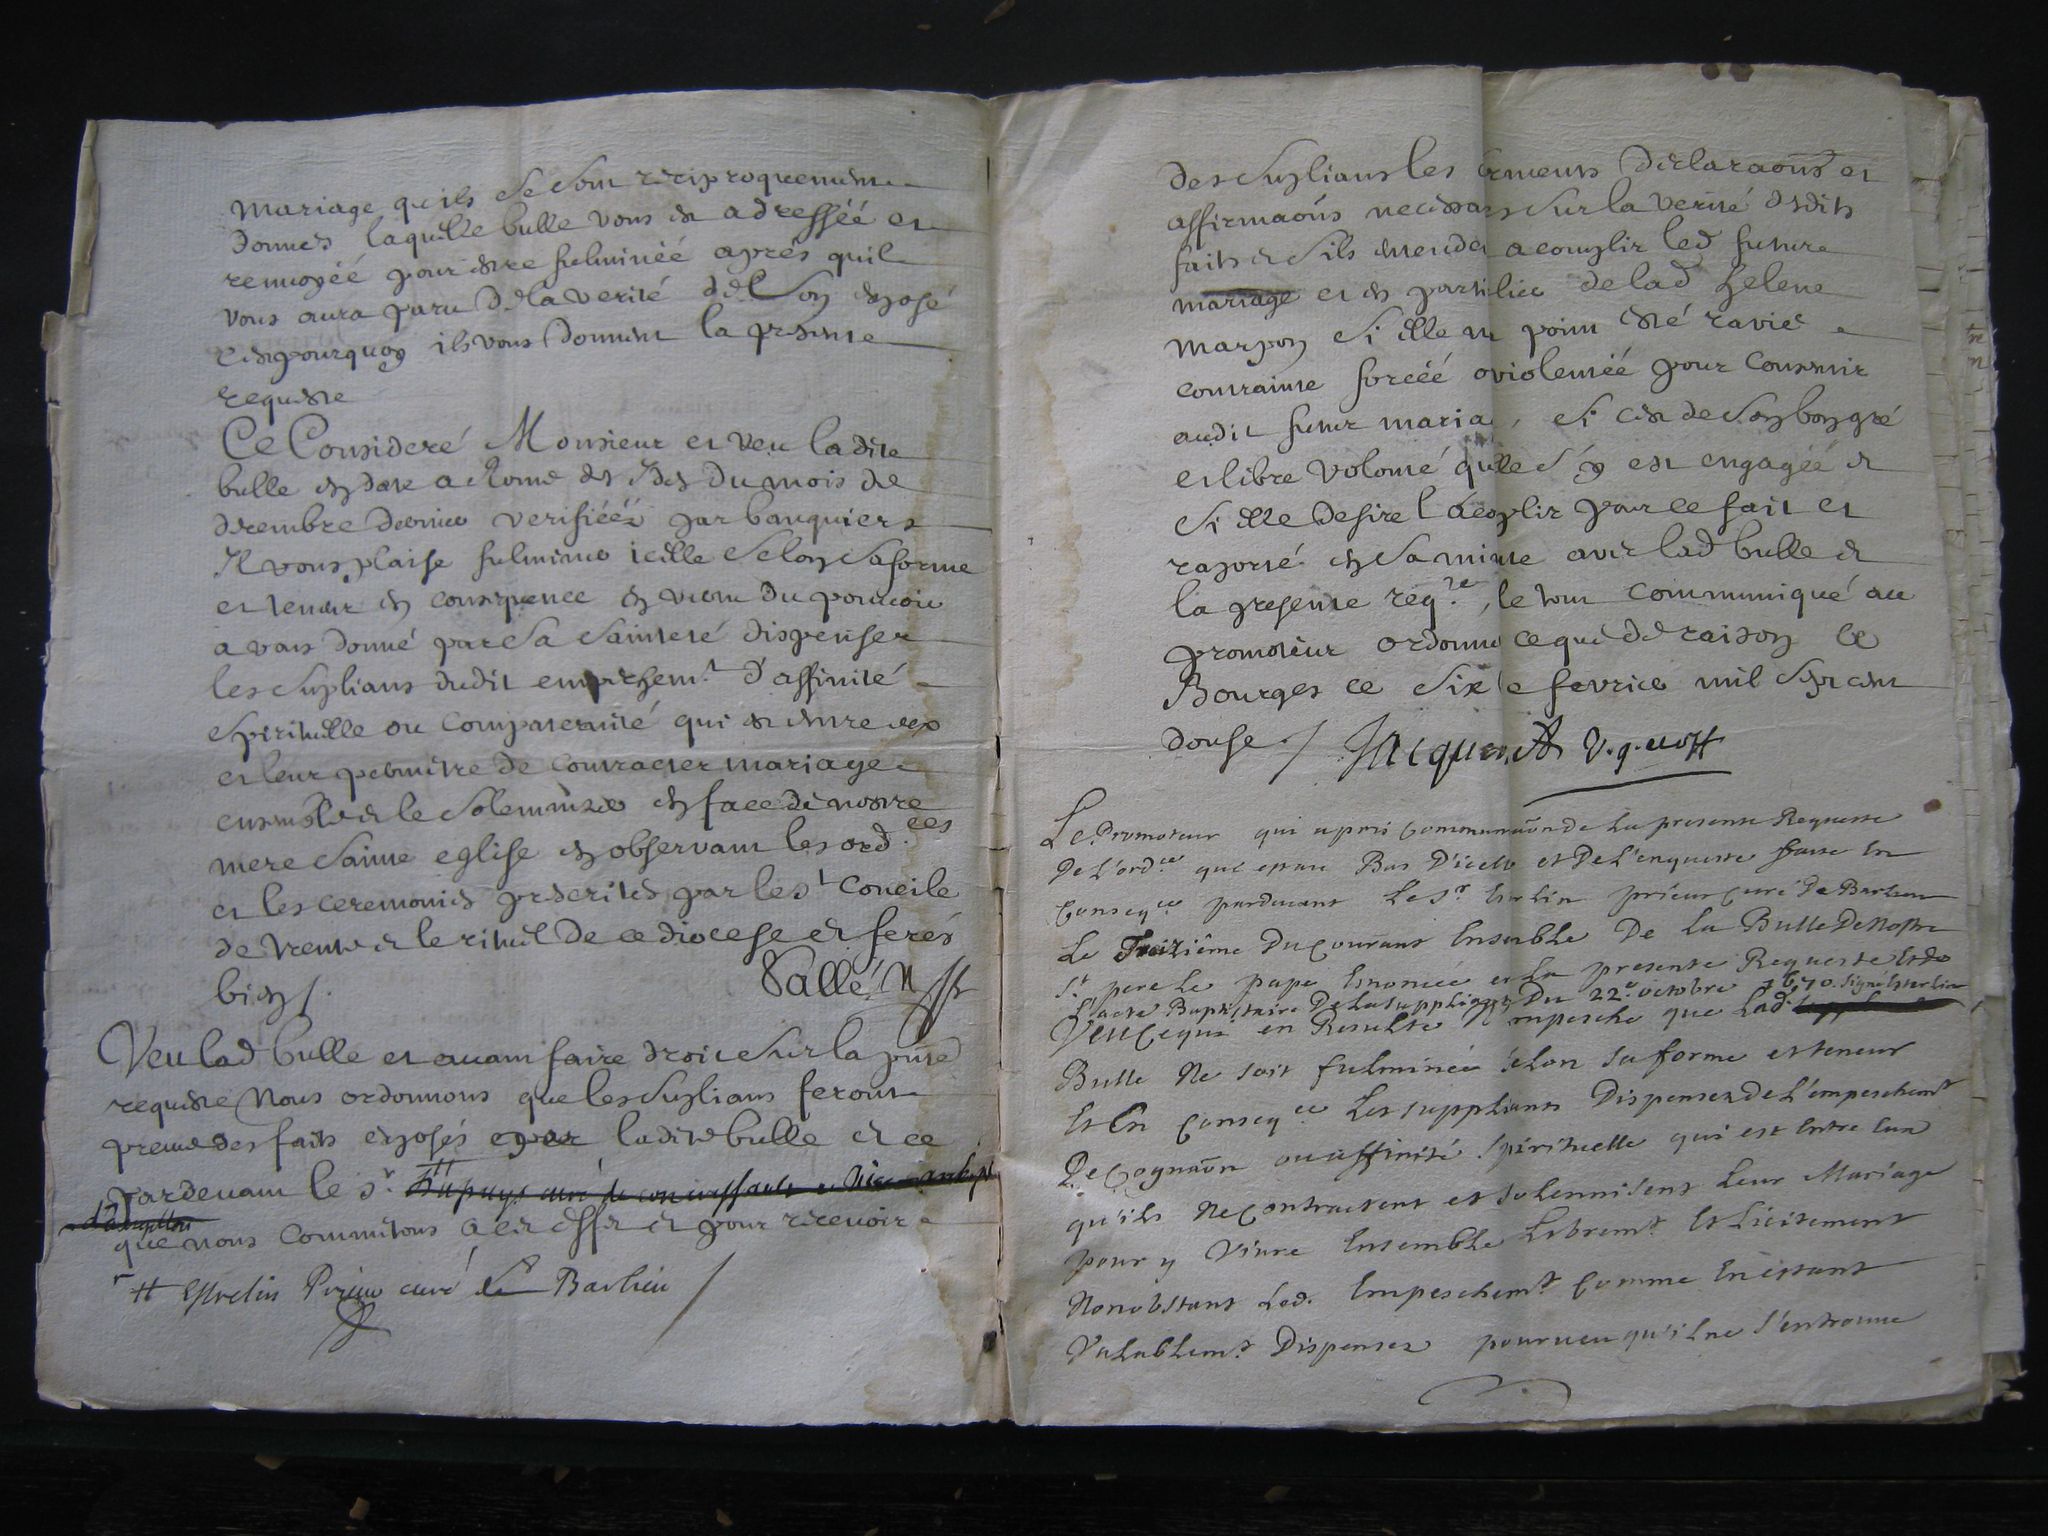 mariage qu'ils se sont reciproquement
donnés laquelle bulle vous est adressée et
renvoyée pour estre fulminée aprés quil
vous aura paru de la verité de son exposé
cest pourquoy ils vous donnent la presente
requeste
Ce Consideré Monsieur et veu ladite
bulle en date a Rome des Ides du mois de
decembre dernier verifiéés par banquiers
Il vous plaise fulminer icelle selon sa forme
et teneur en consequence en vertu du pouvoir
a vous donné par sa sainteté dispenser
les suplians dudit empechemt d'affinité
spirituelle ou compaternité qui est entre eux
et leur permettre de contracter mariage
ensemble et le solemniser en face de nostre
mere sainte eglise en observant les ord.ces
et les ceremonies prescrites par le st concile
de trente et le rituel de ce diocese et ferés
bien /.
Vallé N
Veu lad bulle et avant faire droit sur la pnte
requeste Nous ordonnons que les suplians feront
preuve des faits exposés par ladite bulle et ce
pardevant le sr. ⧺
que nous commettons a cet effet et pour recevoir
⧺ Esterlin Prieur curé de Barlieu /
des suplians les serments declaraons et
affirmaons necessaires sur la verité desdits
faits et s'ils entendent acomplir led futur
mariage et en particulier de lad helene
marpon si elle na point esté ravie
contrainte forcéé violentéé pour consentir
audit futur mariage, si cest de son bon gré
et libre volonté quelle s'y est engagéé et
si elle desire l'acoplir pour ce fait et
raporté en sa minute avec lad bulle et
la presente reqte, le tout communiqué au
promoteur ordonner ce que de raison ce
Bourges ce sixe fevrier mil sept cent
douse ./ v. g. et off
Le Promoteur qui apris communiãon de la presente Requeste
De L'ordce qui est au Bas D'icelle et De L'enqueste faite En
Conseqce pardevant Le Sr Esterlin prieur Curé De Barlieu
Le Treizième Du Courant Ensemble De La Bulle De Nostre
St pere Le pape Enoncée en La presente Requeste Et de
L'acte Baptistaire De La suppliante Du 22e octobre 1670. signé Esterlin
Veu Ce qui en Resulte N'empesche que Lad.
Bulle Ne soit fulminée selon sa forme et teneur
Et En Conseqce Les suppliants Dispensez de L'empeschemt
De Cognaõn ou affinité spirituelle qui est Entre Eux
qu'ils Ne Contractent et solennisent Leur Mariage
pour y Vivre Ensemble Libremt Et Licitement
Nonobstant Led. Empeschemt Comme En estant
Valablemt Dispensez pourveu qu'il ne s'en trouve